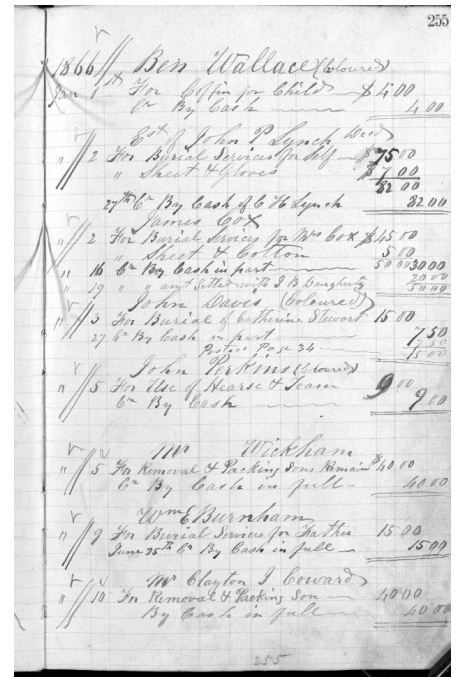 255
1866 Ben Wallace (Coloured)
Jan 1st For Coffin for Child $4 00
Cr By Cash 4 00
Est of John P Lynch Decd
" 2 For Burial Services for Self $75 00
" Sheet & Gloves $7 00
82 00
27th Cr By Cash of C H Lynch 82 00
James Cox
" 2 For Burial Services for Mrs Cox $45 00
" Sheet & Cotton 5 00
" 16 Cr By Cash in part 50 00 30 00
" 19 " " amt Settled with J B Daugherty 20 00
50 00
John Davis (Coloured)
" 3 For Burial of Catherine Stewart 15 00
27 Cr By Cash in part 7 50
Page 34 7 50
15 00
John Perkins (Coloured)
" 5 For Use of Hearse & Team 9 00
Cr By Cash 9 00
Mr Wickham
" 5 For Removal & Packing Sons Remains $40 00
Cr By Cash in full 40 00
Wm E Burnham
" 9 For Burial Services for Father 15 00
June 25th Cr By Cash in full 15 00
Mr Clayton J Coward
" 10 For Removal & Packing Son 40 00
By Cash in full 40 00
255